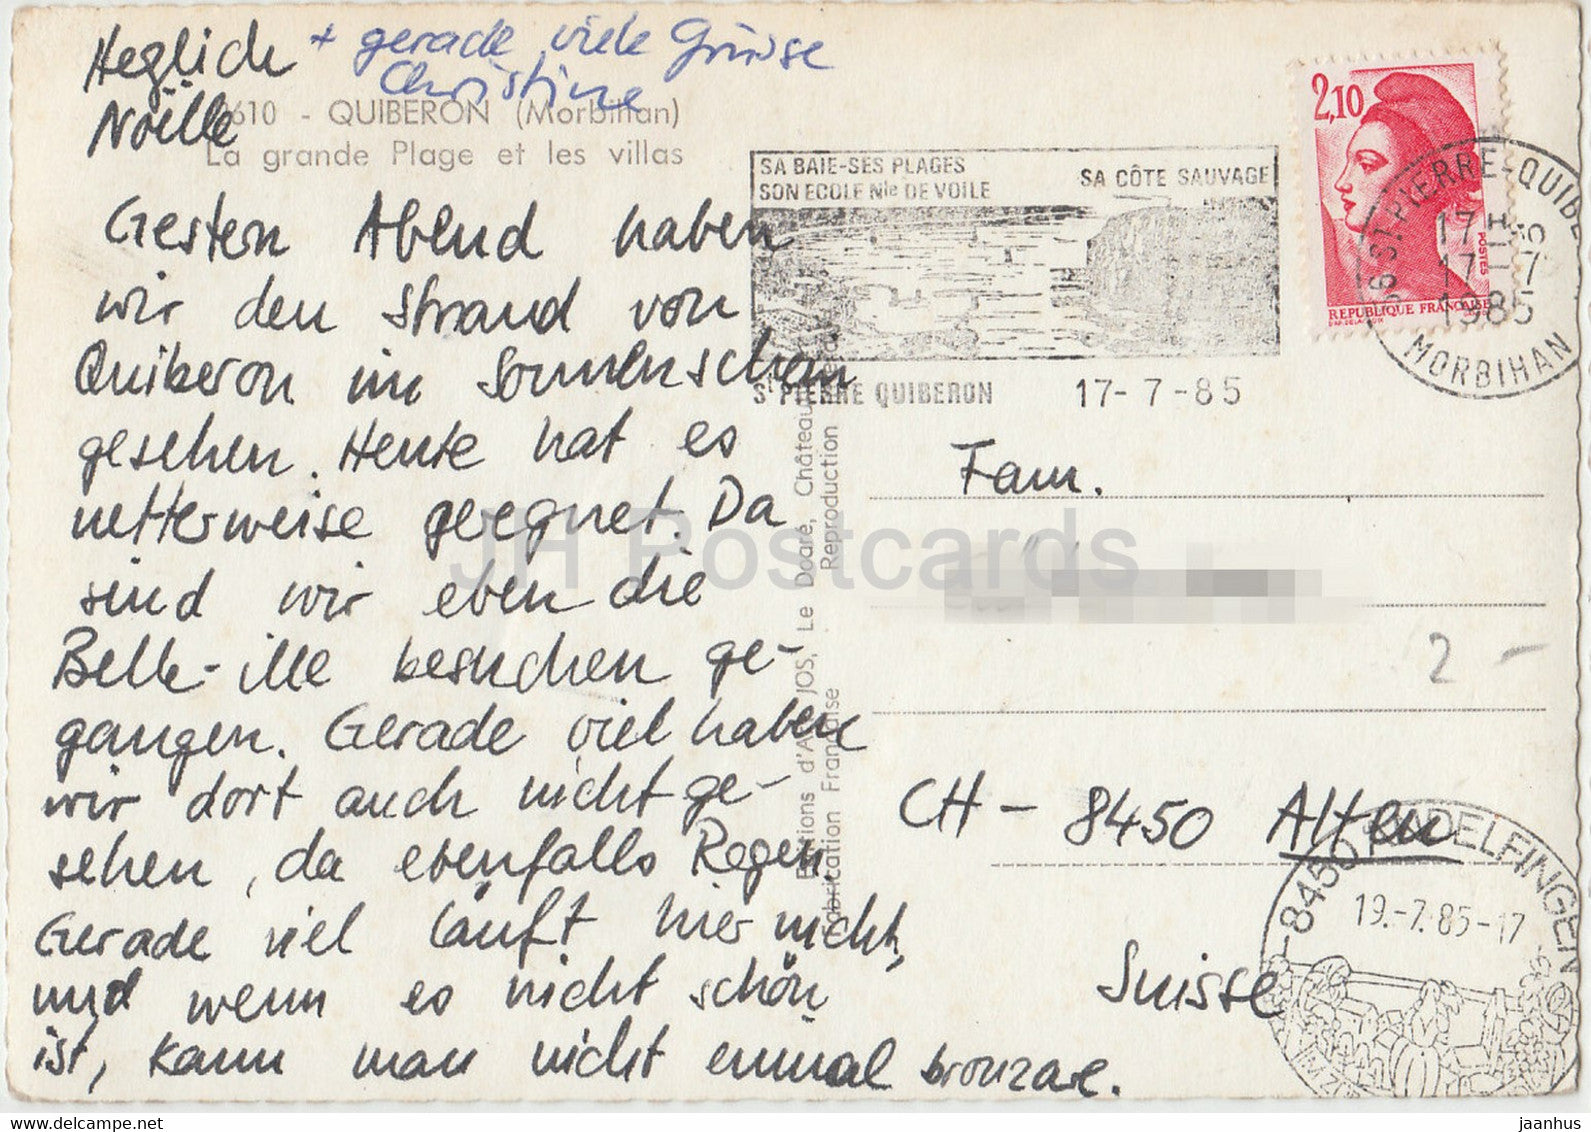 Heglich + gerade viele Grüsse
Christine
Noëlle
610 - QUIBERON (Morbihan)
La grande Plage et les villas
Gestern Abend haben
wir den Strand von
Quiberon im Sonnenschein
gesehen. Heute hat es
netterweise geregnet. Da
sind wir eben die
Belle-ille besuchen ge-
gangen. Gerade viel haben
wir dort auch nicht ge-
sehen, da ebenfalls Regen.
Gerade viel läuft hier nicht,
und wenn es nicht schön
ist, kann man nicht einmal bronzare.
SA BAIE-SES PLAGES
SON ECOLE Nle DE VOILE
SA CÔTE SAUVAGE
ST PIERRE QUIBERON 17-7-85
2,10
POSTES
REPUBLIQUE FRANÇAISE
56 ST-PIERRE-QUIBERON
17 H
17-7
1985
MORBIHAN
Editions d'Art JOS, Le Doaré, Châteaulin
Fabrication Française Reproduction
Fam.
2 -
CH - 8450 Alten
Suisse
8450 ANDELFINGEN
19.-7.85-17
JH Postcards
www.delcampe.net
jaanhus